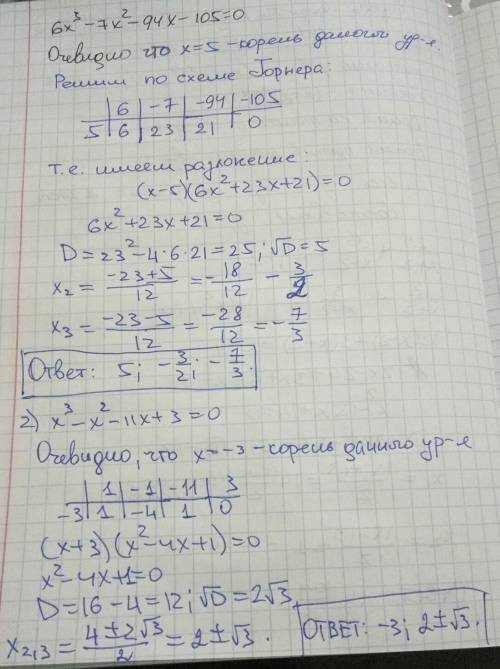 6x³-7x²-94x-105=0
Очевидно что x=5 - корень данного ур-я.
Решим по схеме Горнера:
| 6 | -7 | -94 | -105
5 | 6 | 23 | 21 | 0
т.е. имеем разложение:
(x-5)(6x²+23x+21)=0
6x²+23x+21=0
D=23²-4·6·21=25; √D=5
x₂ = (-23+5)/12 = -18/12 - 3/2
x₃ = (-23-5)/12 = -28/12 = -7/3
Ответ: 5; -3/2; -7/3.
2) x³-x²-11x+3=0
Очевидно, что x=-3 - корень данного ур-я
| 1 | -1 | -11 | 3
-3 | 1 | -4 | 1 | 0
(x+3)(x²-4x+1)=0
x²-4x+1=0
D=16-4=12; √D=2√3
x₂,₃ = (4±2√3)/2 = 2±√3.
ОТВЕТ: -3; 2±√3.